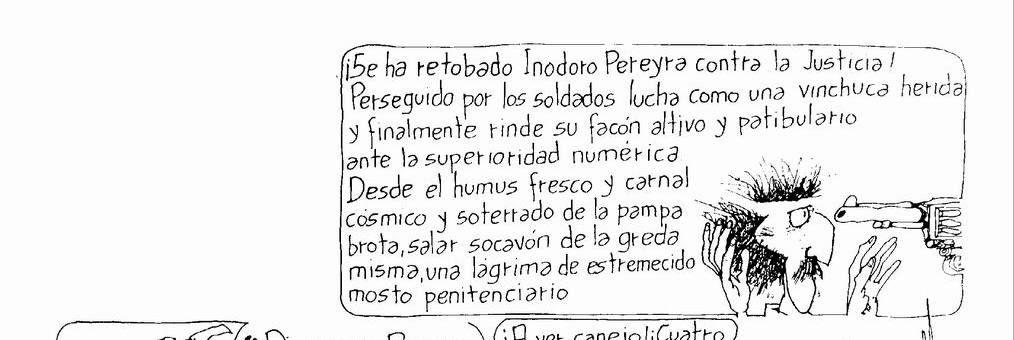 ¡Se ha retobado Inodoro Pereyra contra la Justicia!
Perseguido por los soldados lucha como una vinchuca herida
y finalmente rinde su facón altivo y patibulario
ante la superioridad numérica
Desde el humus fresco y carnal
cósmico y soterrado de la pampa
brota, salar socavón de la greda
misma, una lágrima de estremecido
mosto penitenciario
¡A ver canejo! ¡Cuatro